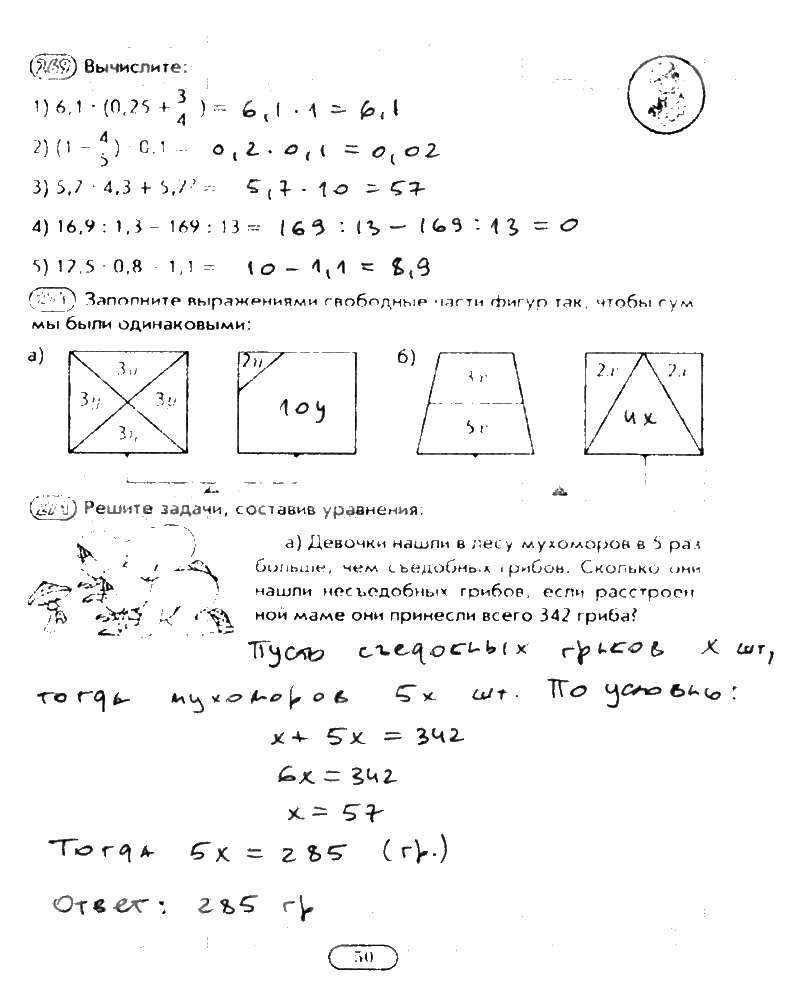 Вычислите:
1) 6,1 · (0,25 + 3/4) = 6,1 · 1 = 6,1
2) (1 − 4/5) · 0,1 = 0,2 · 0,1 = 0,02
3) 5,7 · 4,3 + 5,7² = 5,7 · 10 = 57
4) 16,9 : 1,3 − 169 : 13 = 169 : 13 − 169 : 13 = 0
5) 12,5 · 0,8 − 1,1 = 10 − 1,1 = 8,9
Заполните выражениями свободные части фигур так, чтобы сум
мы были одинаковыми:
а) 3y 3y 3y 3y 2y 10y б) 3x 5x 2x 2x 4x
Решите задачи, составив уравнения:
а) Девочки нашли в лесу мухоморов в 5 раз
больше, чем съедобных грибов. Сколько они
нашли несъедобных грибов, если расстроен
ной маме они принесли всего 342 гриба?
Пусть съедобных грибов x шт,
тогда мухоморов 5x шт. По условию:
x + 5x = 342
6x = 342
x = 57
Тогда 5x = 285 (гр.)
Ответ: 285 гр
50